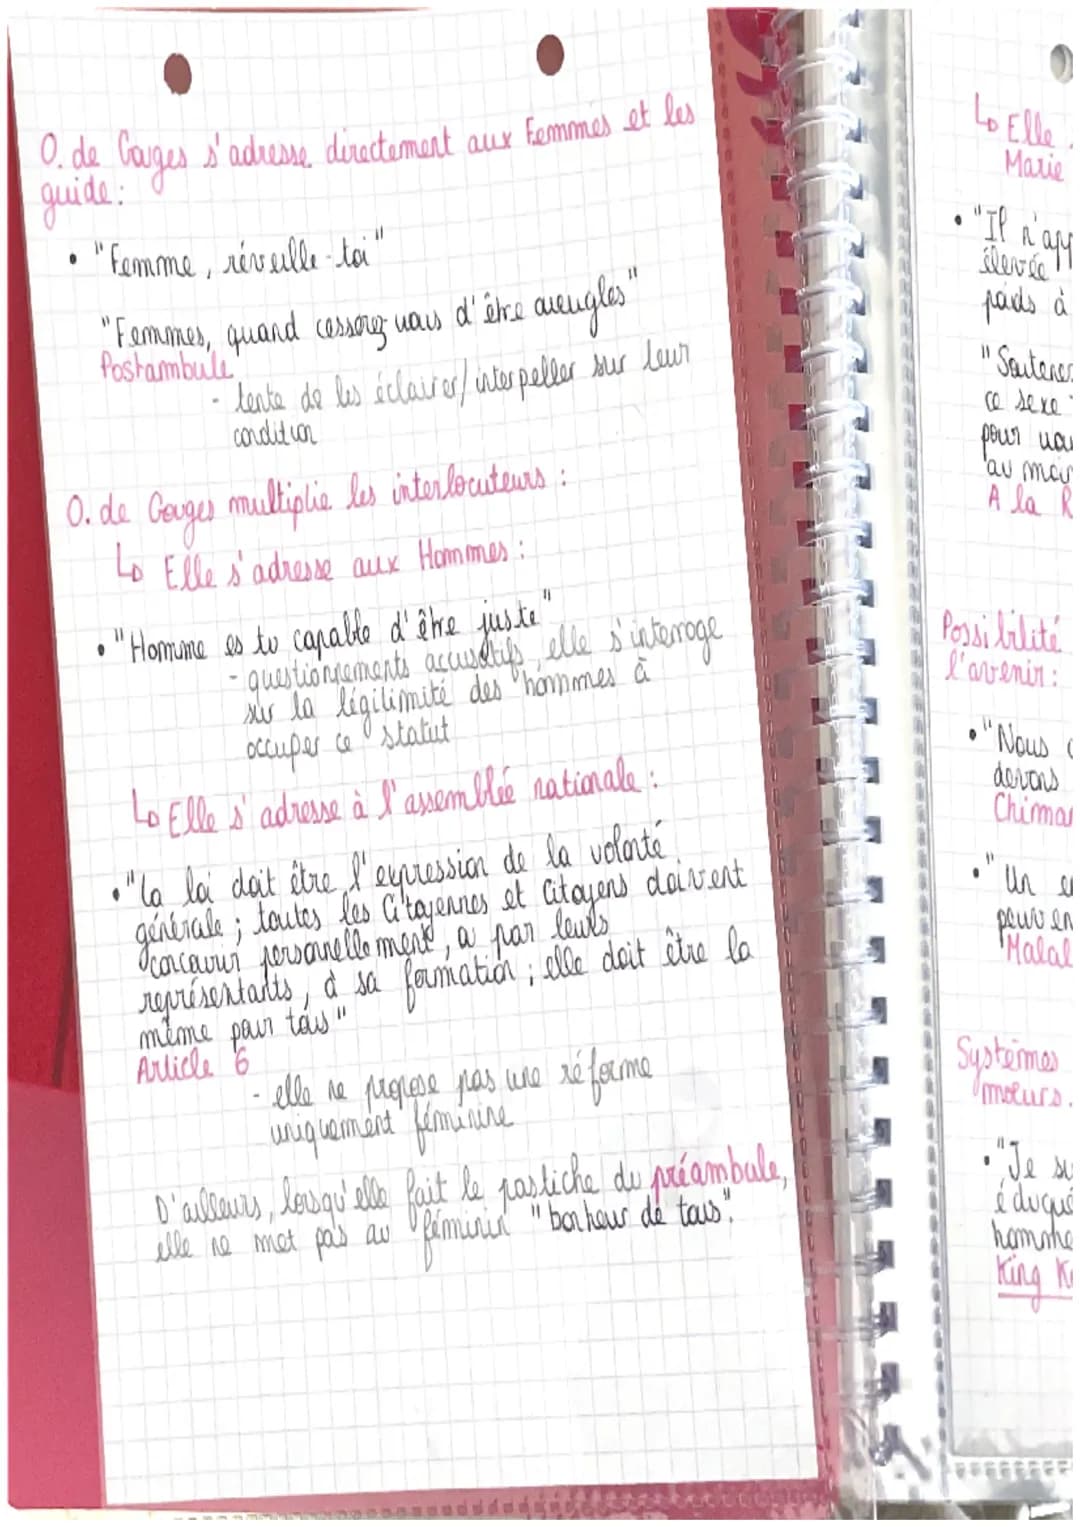 O. de Gouges s'adresse directement aux Femmes et les
guide :
• "Femme, réveille-toi"
"Femmes, quand cesserez-vous d'être aveugles"
Postambule
- tente de les éclairer/interpeller sur leur
condition
O. de Gouges multiplie les interlocuteurs :
↳ Elle s'adresse aux Hommes :
• "Homme es tu capable d'être juste"
- questionnements accusatifs, elle s'interroge
sur la légitimité des hommes à
occuper ce statut
↳ Elle s'adresse à l'assemblée nationale :
• "La loi doit être l'expression de la volonté
générale ; toutes les Citoyennes et Citoyens doivent
concourir personellement, ou par leurs
représentants, à sa formation ; elle doit être la
même pour tous"
Article 6
- elle ne propose pas une réforme
uniquement féminine
D'ailleurs, lorsqu'elle fait le pastiche du préambule,
elle ne met pas au féminin "bonheur de tous".
↳ Elle
Marie
• "Il n'app
élevée
poids à
"Soutenez
ce sexe
pour vou
au moi
A la R
Possibilité
l'avenir :
• "Nous
devons
Chimam
• "Un
peuv en
Malal
Systèmes
moeurs.
• "Je su
éduqué
homme
King K